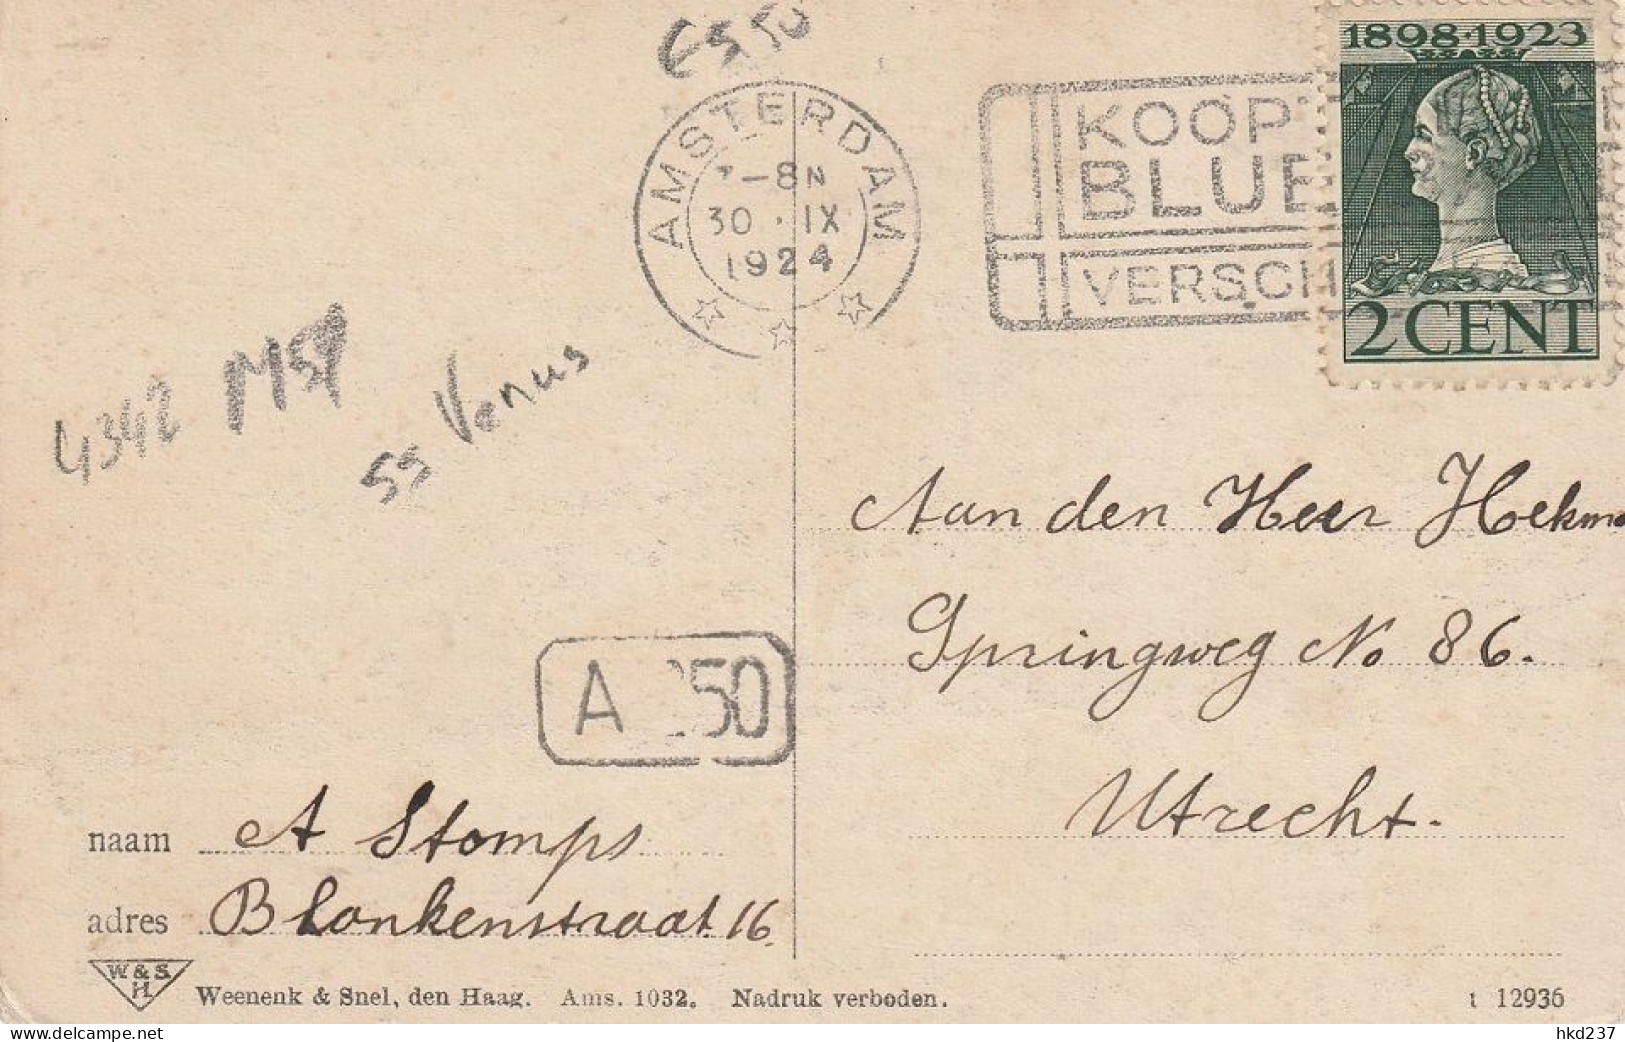 1898·1923
2 CENT
AMSTERDAM
-8N
30·IX
1924
KOOP
BLUE
VERSCH
4342
55 Venus
A 250
Aan den Heer Hekma
Springweg No 86.
Utrecht.
naam A Stomps
adres Blankenstraat 16.
W. & S.
H.
Weenenk & Snel, den Haag. Ams. 1032. Nadruk verboden.
t 12936
delcampe.net
hkd237